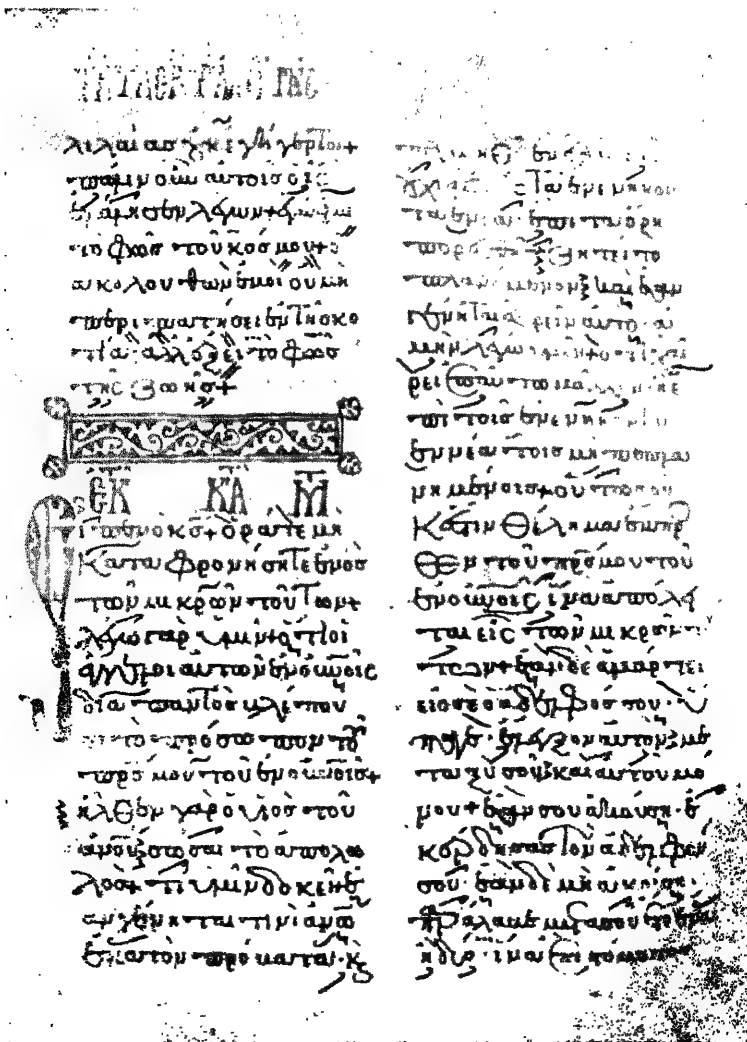 λιλαίας οὐκ ἐγήγερται+
πάλιν οὖν αὐτοῖς ὁ ις
ἐλάλησεν λέγων+ ἐγώ εἰμι
τὸ φῶς τοῦ κόσμου+ ὁ
ἀκολουθῶν ἐμοὶ οὐ μὴ
περιπατήσει ἐν τῇ σκο
τίᾳ· ἀλλ' ἕξει τὸ φῶς
τῆς ζωῆς+
Εἶπεν ὁ κς+ ὁρᾶτε μὴ
καταφρονήσητε ἑνὸς
τῶν μικρῶν τούτων+
λέγω γὰρ ὑμῖν+ ὅτι οἱ
ἄγγελοι αὐτῶν ἐν οὐνοις
διὰ παντὸς βλέπου
σι τὸ πρόσωπον τοῦ
πρς μου τοῦ ἐν οὐνοις+
ἦλθεν γὰρ ὁ υἱὸς τοῦ
ἀνου σῶσαι τὸ ἀπολω
λός+ τί ὑμῖν δοκεῖ+ ἐ
ὰν γένηταί τινι ἀνω
ἑκατὸν πρόβατα· κ
τα ἐννέα ἐπὶ τὰ ὄρη
πορευ ζητεῖ τὸ
πλανώμενον· καὶ ἐὰν
γένηται εὑρεῖν αὐτό· ἀ
μὴν λέγω ὑμῖν+ ὅτι χαί
ρει ἐπ' αὐτῷ μᾶλλον ἢ ἐ
πὶ τοῖς ἐνενήκοντα
ἐννέα τοῖς μὴ πεπλαν
ημένοις+ οὕτως οὐκ
ἔστιν θέλημα ἔμπρο
σθεν τοῦ πρς μου τοῦ
ἐν οὐνοις ἵνα ἀπόλη
ται εἷς τῶν μικρῶν
τούτων+ ἐὰν δὲ ἁμαρτήσει
εἰς σὲ ὁ ἀδελφός σου· ὕ
παγε· ἔλεγξον αὐτὸν με
ταξὺ σοῦ καὶ αὐτοῦ μό
νου+ ἐάν σου ἀκούσῃ· ἐ
κέρδησας τὸν ἀδελφόν
σου· ἐὰν δὲ μὴ ἀκούσῃ·
παράλαβε μετὰ σοῦ ἔτι ἕνα
ἢ δύο· ἵνα ἐπὶ στόματος